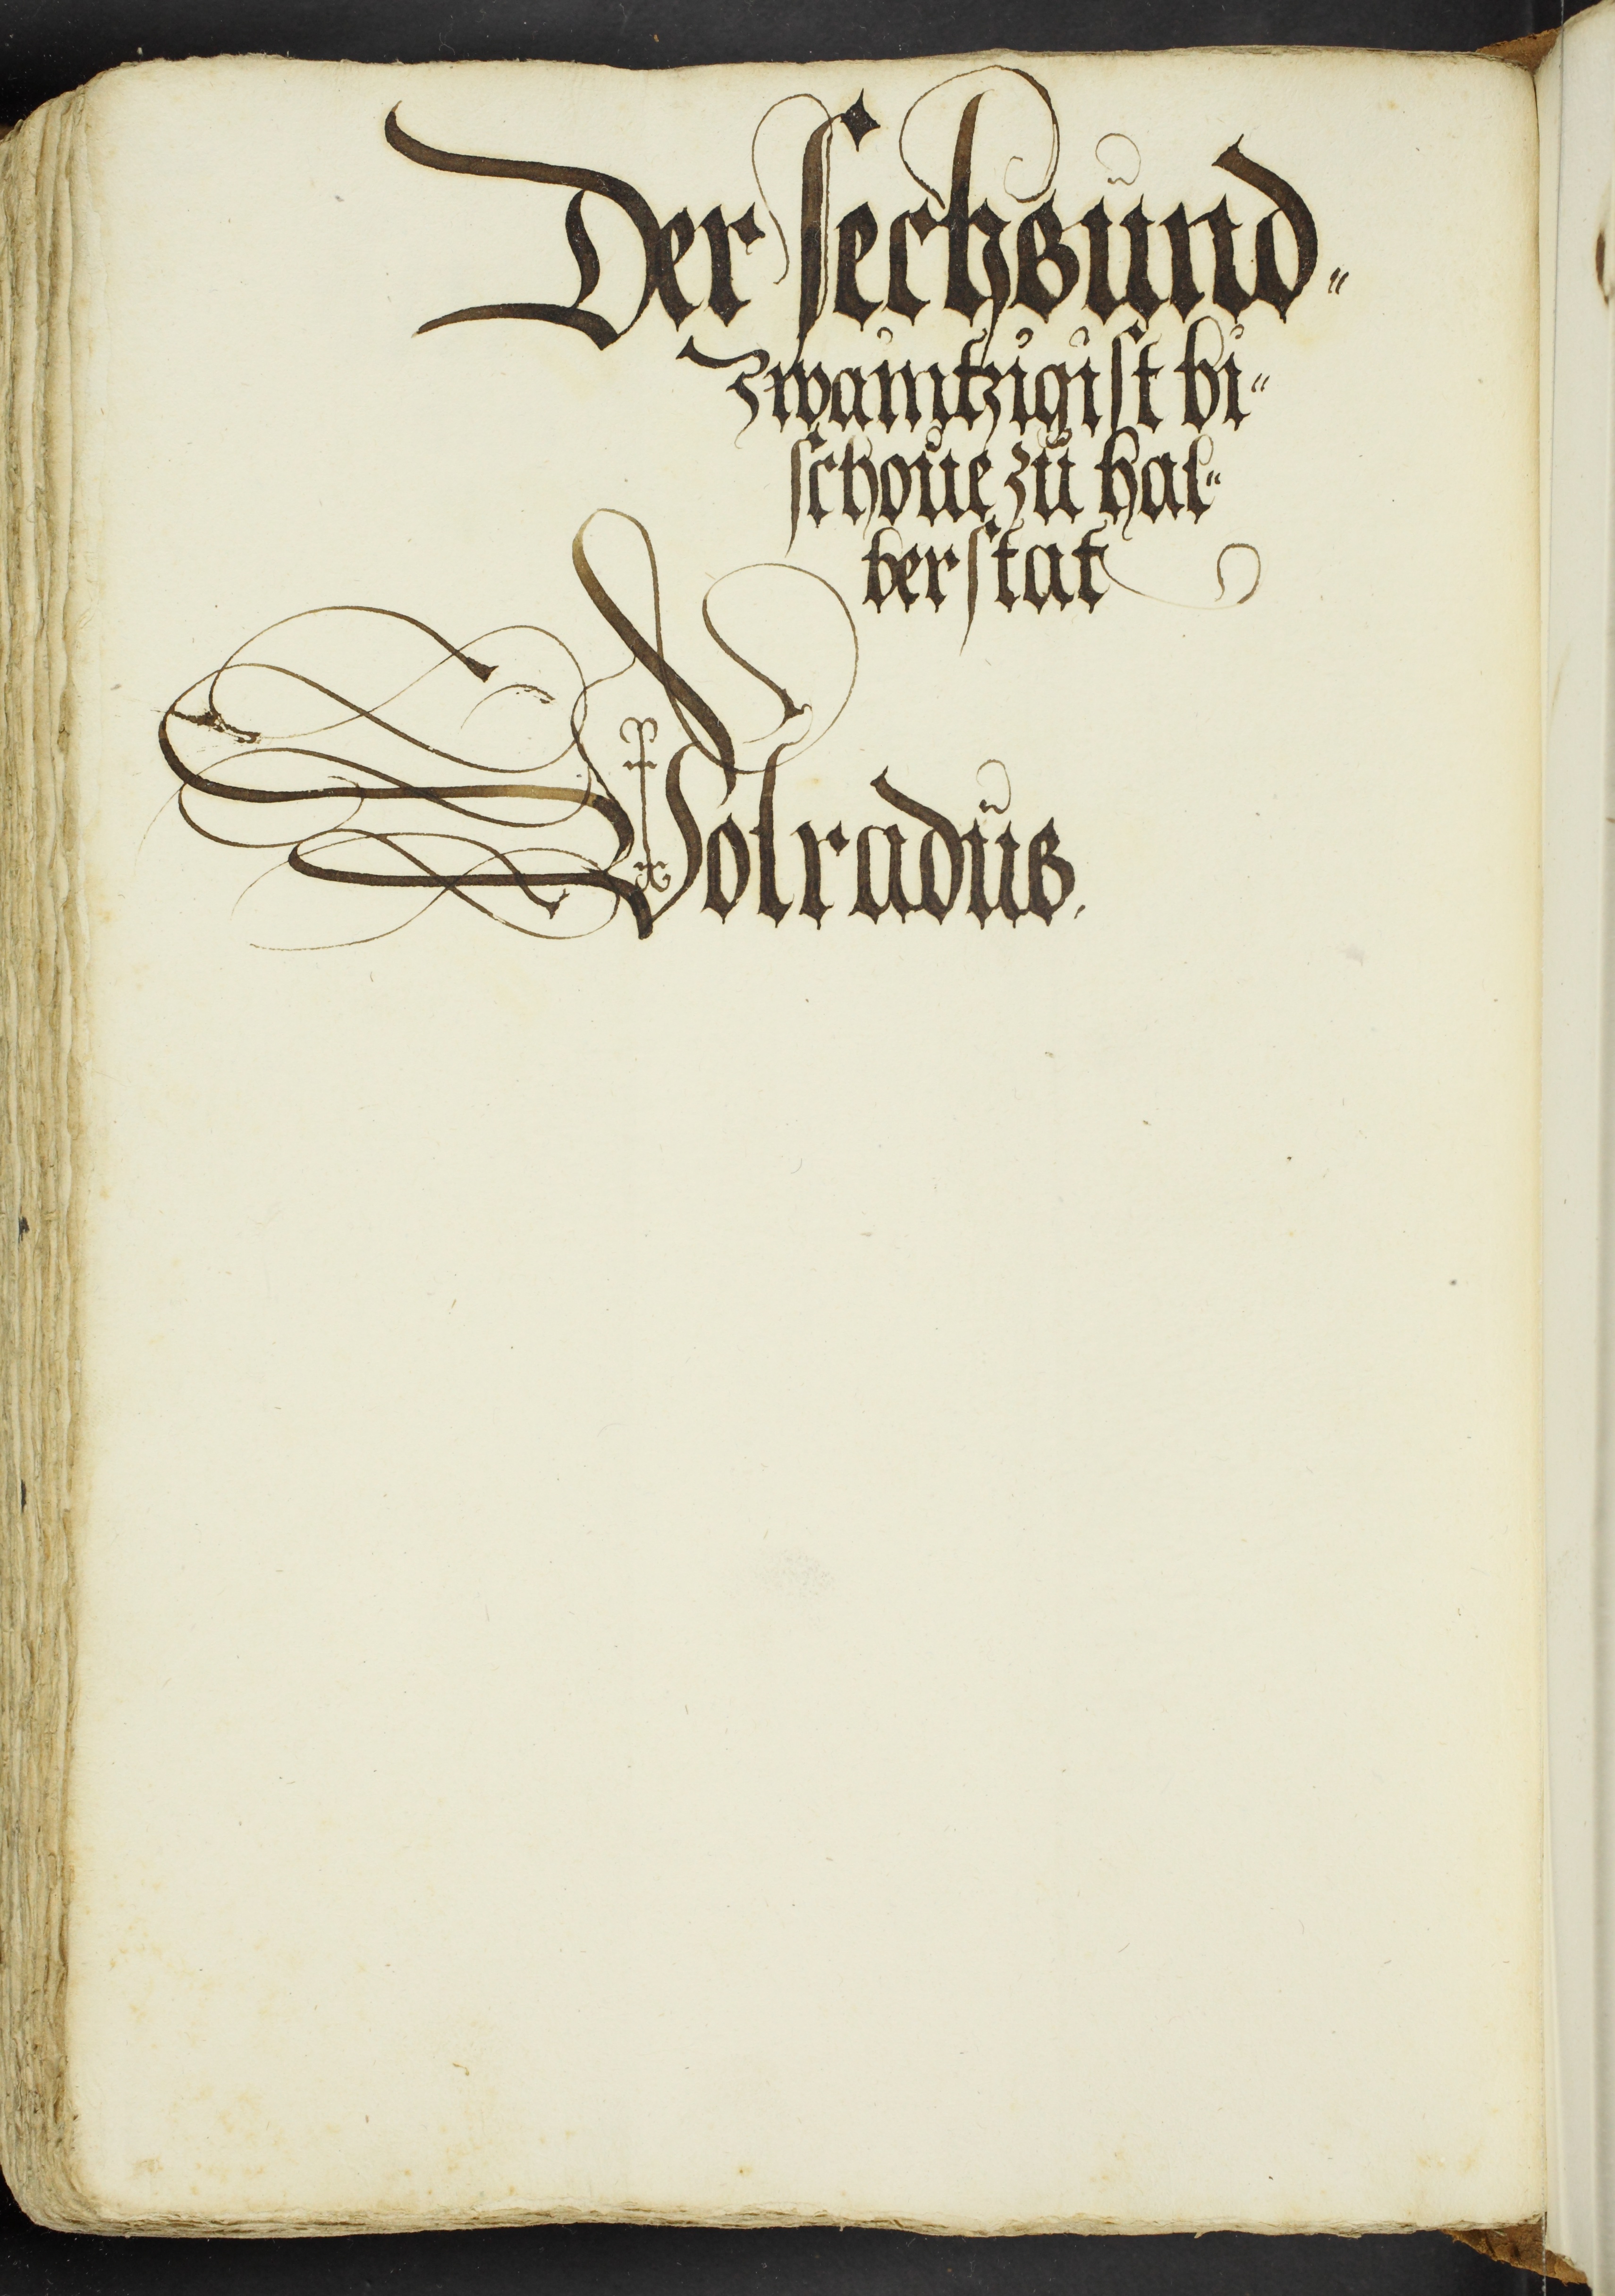 Der sechsund⸗
zwaintzigist bi⸗
schoue zu hal⸗
berstat
Volradus.